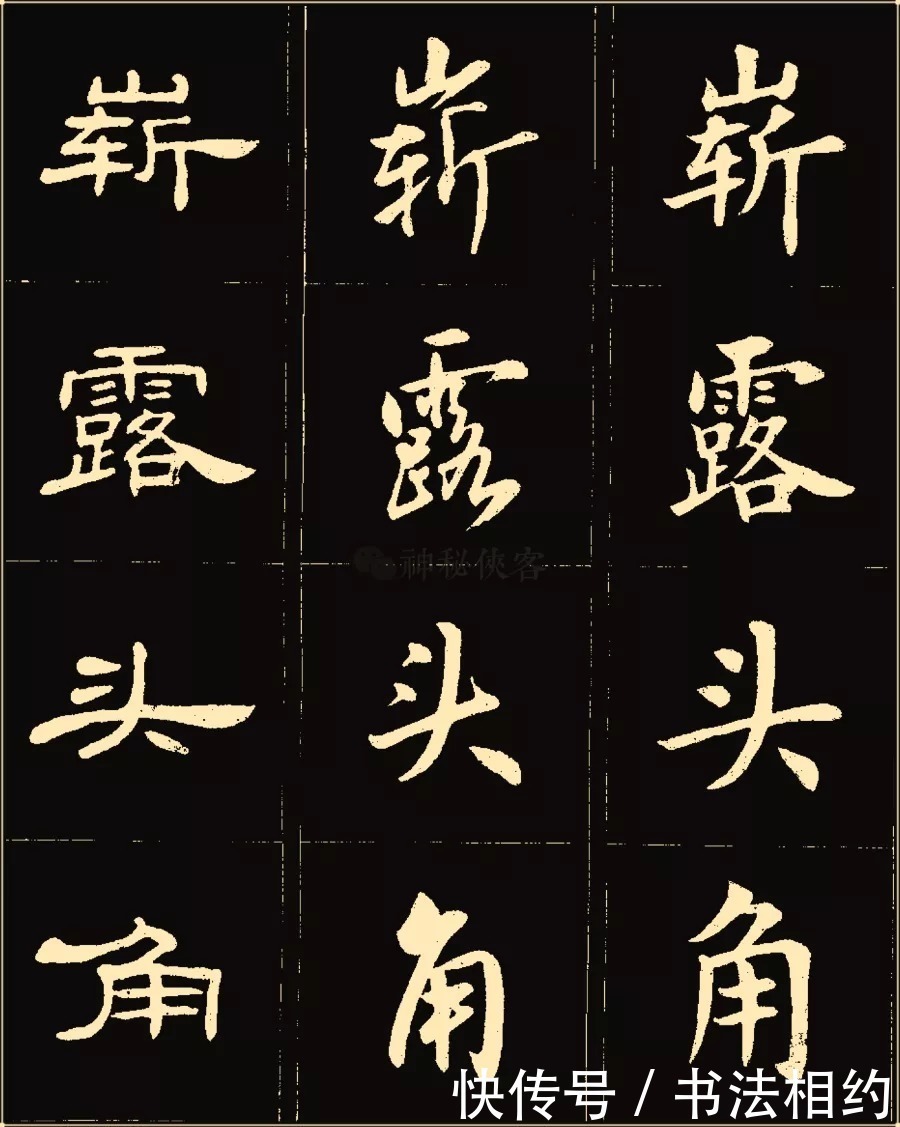 崭 崭 崭
露 露 露
头 头 头
角 角 角
神秘侠客
快传号 / 书法相约